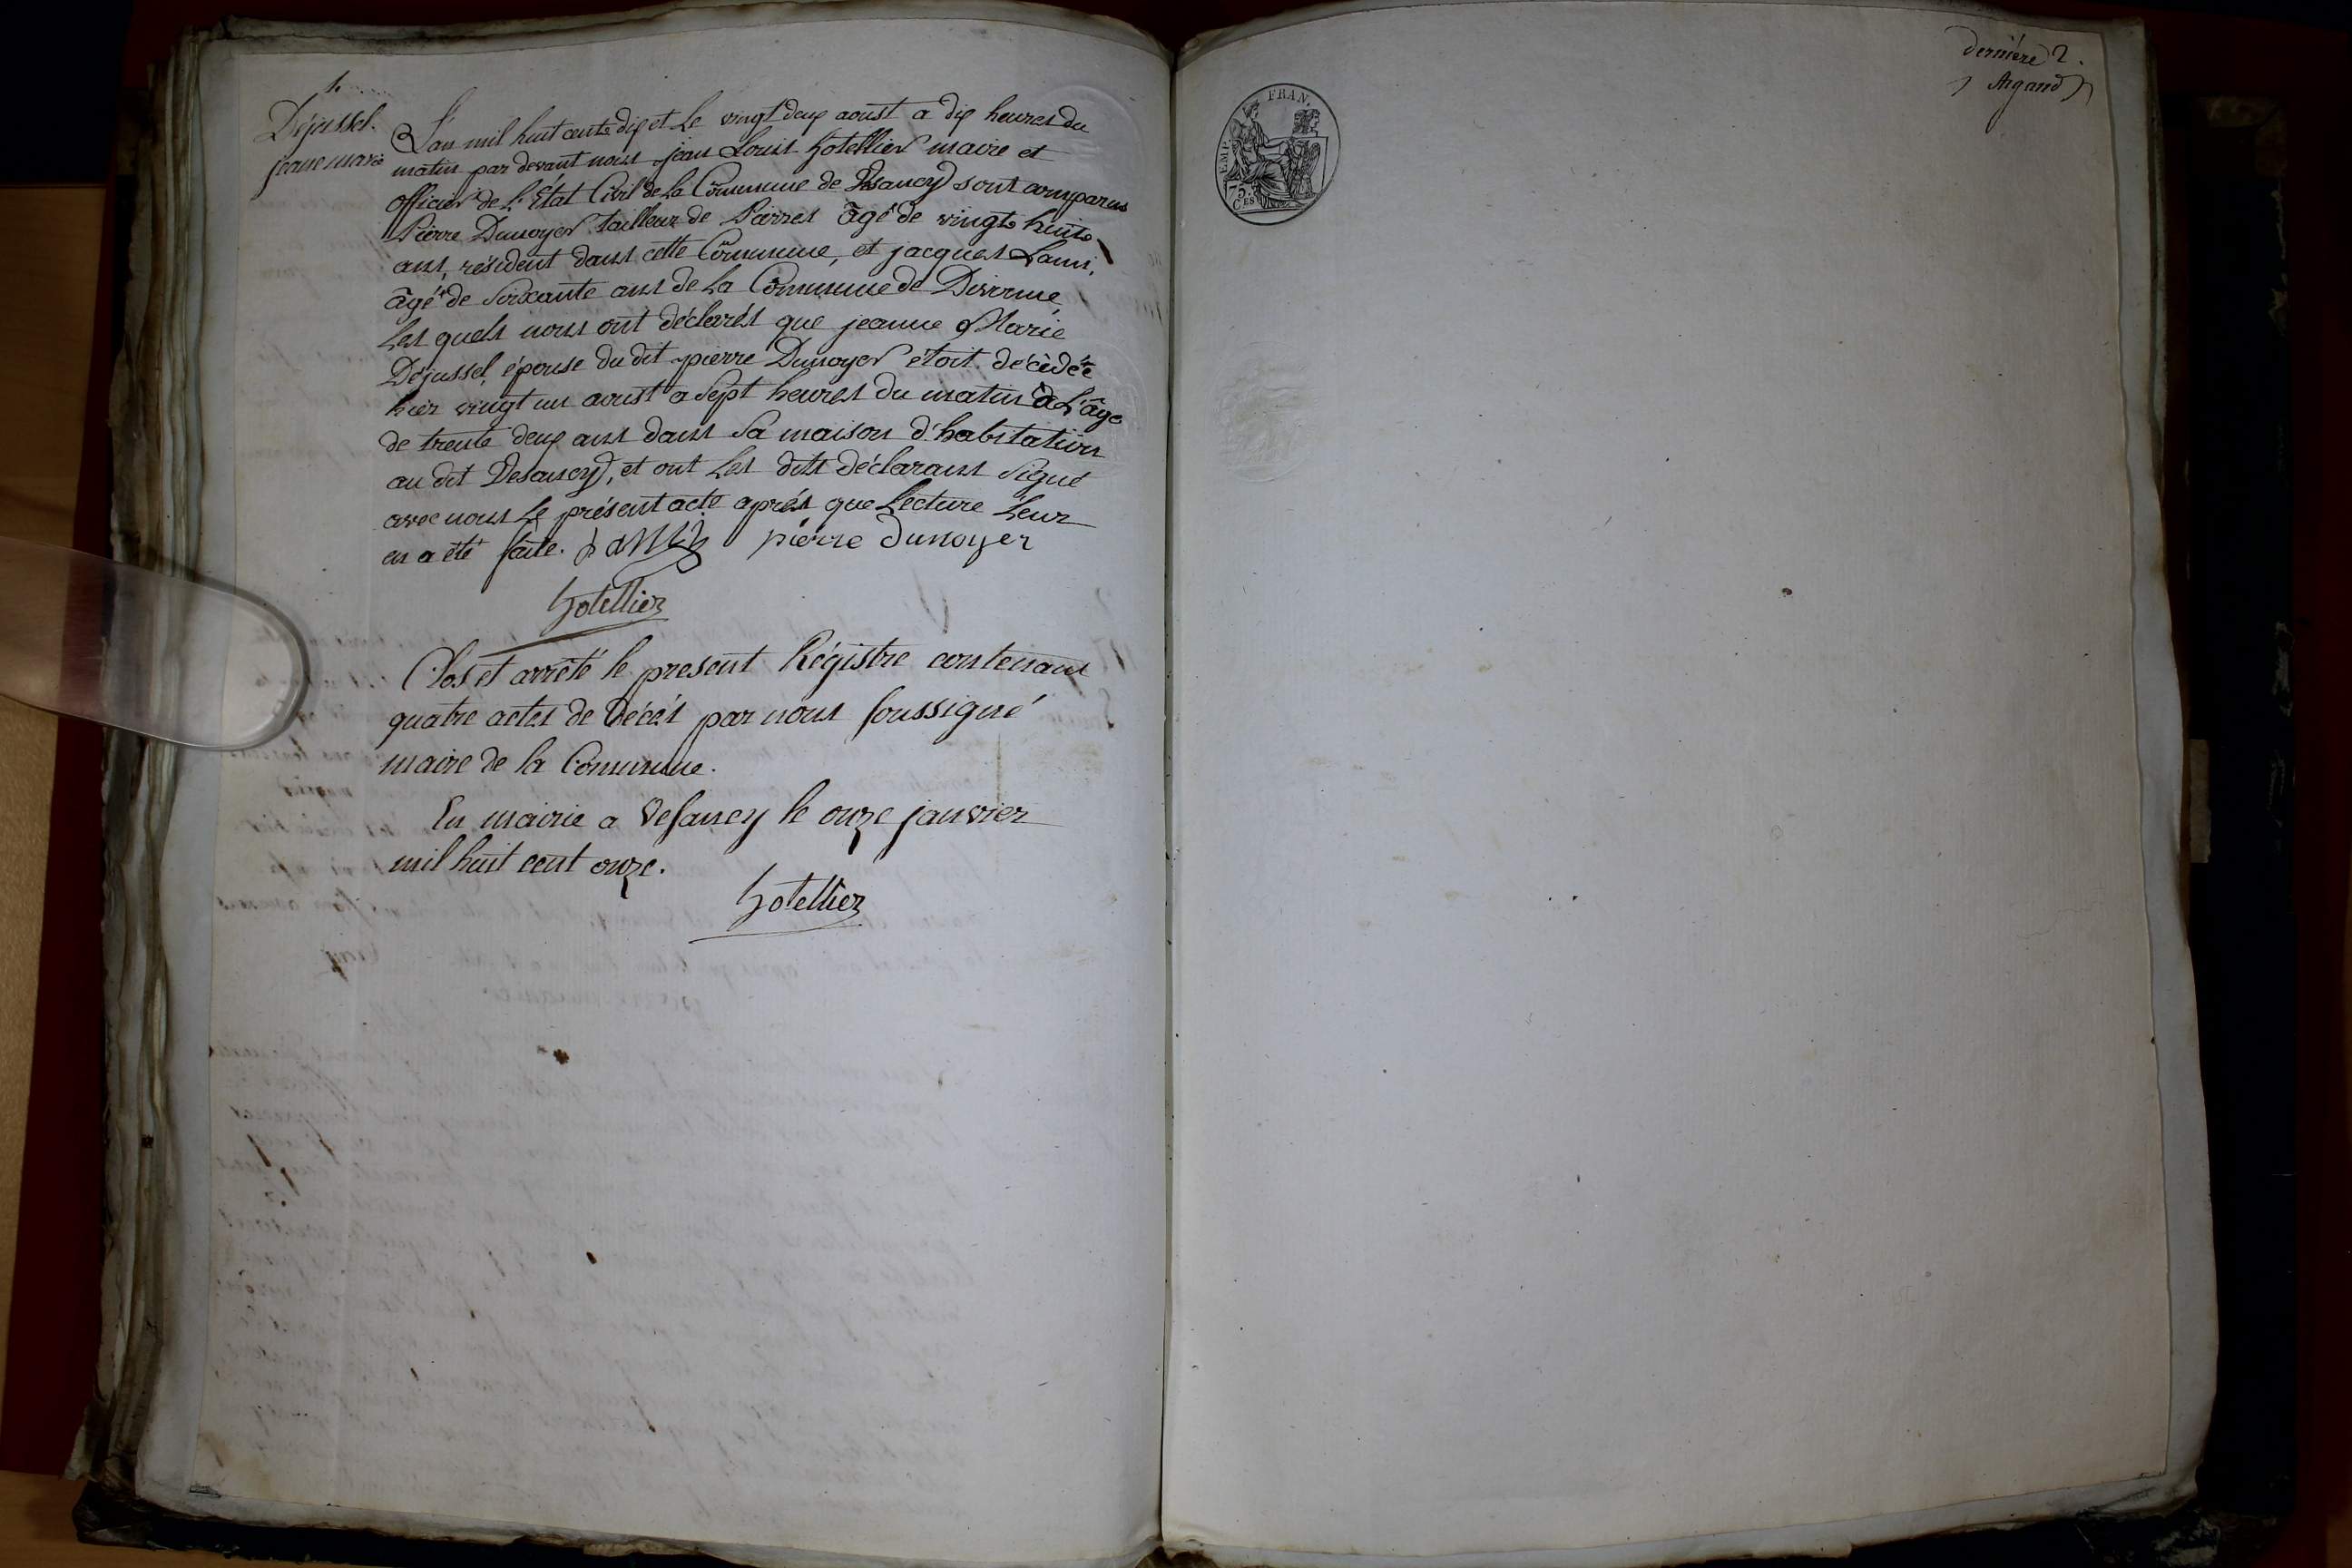 4.
Dejussel.
jeanne marie
L'an mil huit cents dix et Le vingt deux aoust a dix heures du
matin par devant nous jean Louis hotellier maire et
officier de L'État Civil de La Commune de Vesancy sont comparus
Pierre Dunoyer tailleur de Pierres âgé de vingt huit
ans, résident dans cette Commune, et jacques Lami,
âgé de soixante ans de La Commune de Divonne
Les quels nous ont déclarés que jeanne Marie
Dejussel, épouse du dit pierre Dunoyer étoit décédée
hier vingt un aoust a sept heures du matin à L'âge
de trente deux ans dans sa maison d'habitation
au dit Vesancy, et ont Les dits déclarans signé
avec nous Le présent acte après que Lecture Leur
en a été faite. pierre dunoyer
hotellier
Clos et arrêté le present Régistre contenant
quatre actes de Décés par nous soussigné
maire de la Commune.
En mairie a Vesancy le onze janvier
mil huit cent onze.
hotellier
dernière 2.
Argand
EMP. FRAN.
75
CES